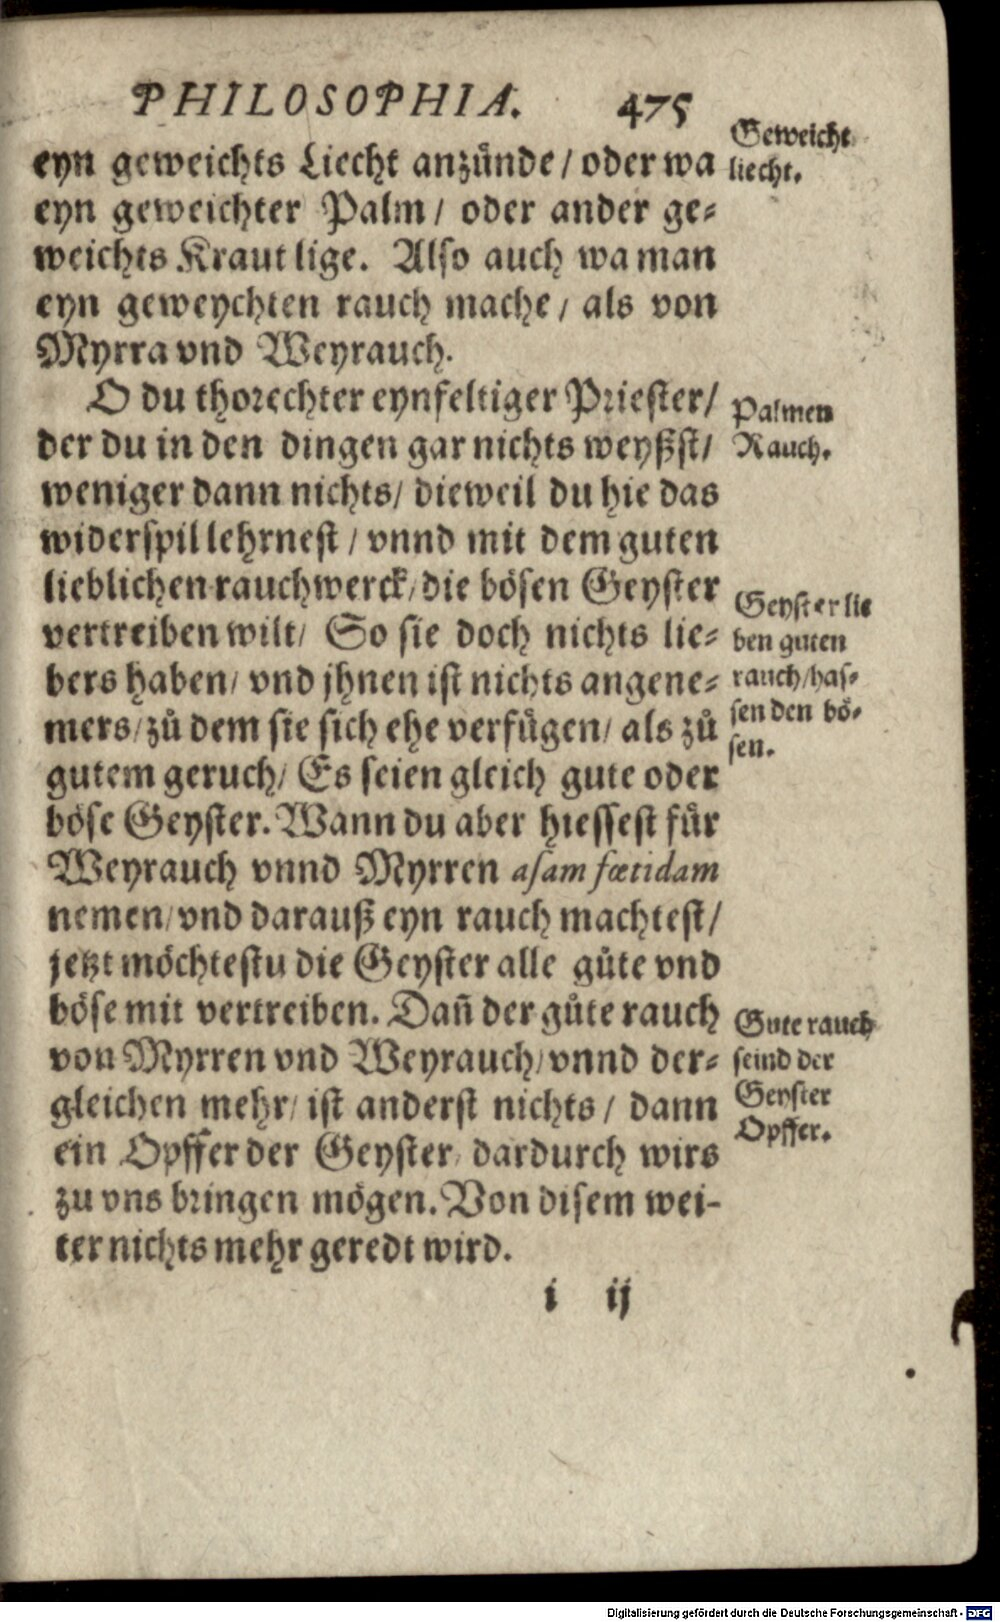 PHILOSOPHIA. 475
eyn geweichts Liecht anzünde / oder wa
eyn geweichter Palm / oder ander ge-
weichts Kraut lige. Also auch wa man
eyn geweychten rauch mache / als von
Myrra vnd Weyrauch.
O du thorechter eynfeltiger Priester /
der du in den dingen gar nichts weyßst /
weniger dann nichts / dieweil du hie das
widerspil lehrnest / vnnd mit dem guten
lieblichen rauchwerck / die bösen Geyster
vertreiben wilt / So sie doch nichts lie-
bers haben / vnd jhnen ist nichts angene-
mers / zů dem sie sich ehe verfügen / als zů
gutem geruch / Es seien gleich gute oder
böse Geyster. Wann du aber hiessest für
Weyrauch vnnd Myrren asam fœtidam
nemen / vnd darauß eyn rauch machtest /
jetzt möchtestu die Geyster alle gůte vnd
böse mit vertreiben. Dañ der gůte rauch
von Myrren vnd Weyrauch / vnnd der-
gleichen mehr / ist anderst nichts / dann
ein Opffer der Geyster / dardurch wirs
zu vns bringen mögen. Von disem wei-
ter nichts mehr geredt wird.
i ij
Geweicht
liecht.
Palmen
Rauch.
Geyster lie
ben guten
rauch / has-
sen den bö-
sen.
Gute rauch
seind der
Geyster
Opffer.
Digitalisierung gefördert durch die Deutsche Forschungsgemeinschaft - DFG